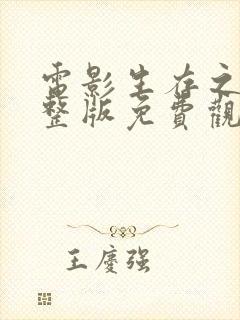 電影生存之
整版免費觀
王慶强